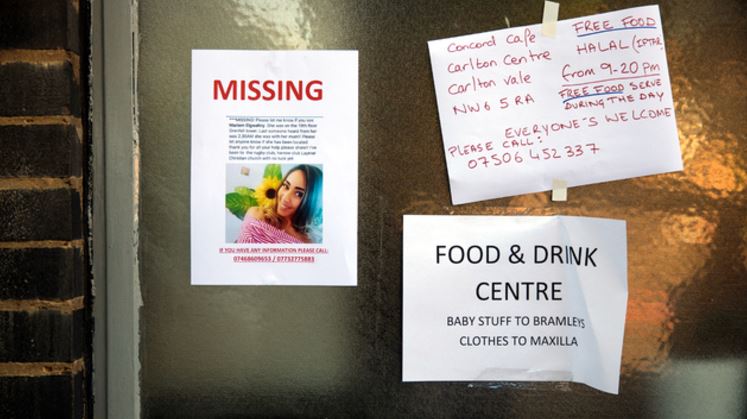 MISSING
***MISSING! Please let me know if you see
Mariem Elgwahry. She was on the 19th floor
Grenfell tower. Last someone heard from her
was 2.30AM she was with her mum!! Please
let anyone know if she has been located
thank you for all your help please share!! I've
been to the rugby club, harrow club Laymer
Christian church with no luck yet
IF YOU HAVE ANY INFORMATION PLEASE CALL:
07468609653 / 07732775883
Concord Cafe
Carlton Centre
Carlton vale
NW6 5RA
FREE FOOD
HALAL (IFTAR
from 9-20 pm
FREE FOOD SERVE
DURING THE DAY
EVERYONE'S WELCOME
PLEASE CALL:
07506 452 337
FOOD & DRINK
CENTRE
BABY STUFF TO BRAMLEYS
CLOTHES TO MAXILLA